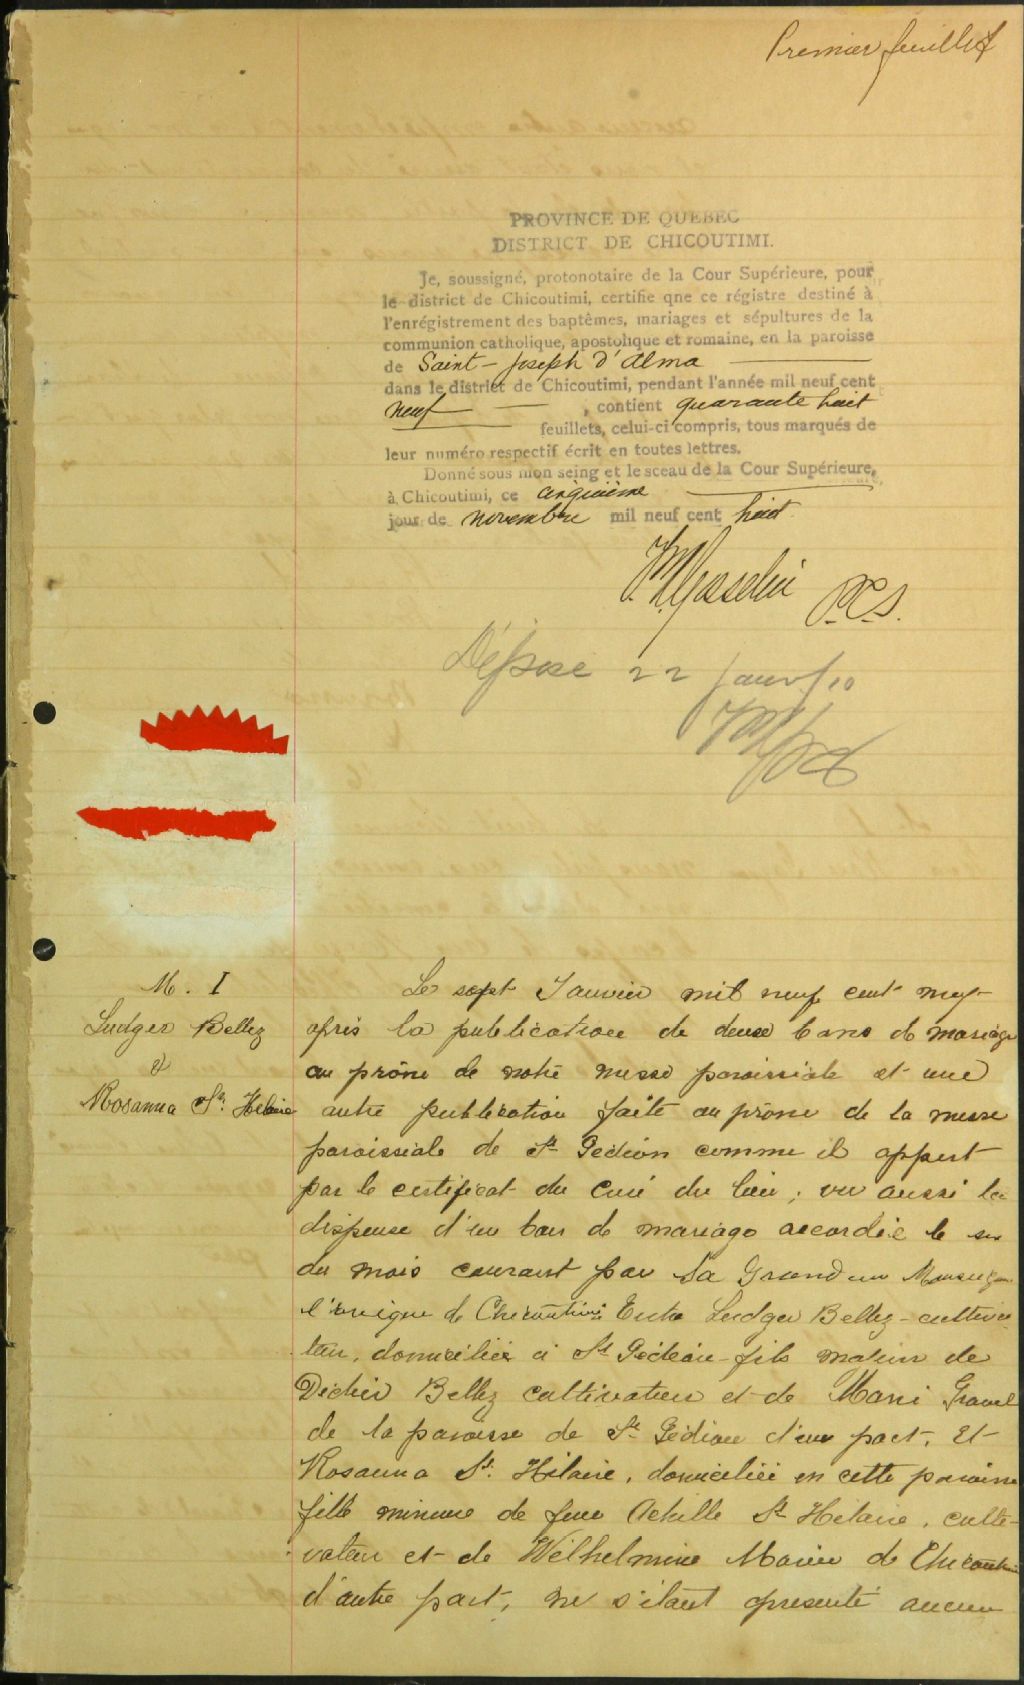 Premier feuillet
PROVINCE DE QUEBEC
DISTRICT DE CHICOUTIMI.
Je, soussigné, protonotaire de la Cour Supérieure, pour
le district de Chicoutimi, certifie qne ce régistre destiné à
l'enrégistrement des baptêmes, mariages et sépultures de la
communion catholique, apostolique et romaine, en la paroisse
de Saint-Joseph d'Alma
dans le district de Chicoutimi, pendant l'année mil neuf cent
neuf , contient quarante huit
feuillets, celui-ci compris, tous marqués de
leur numéro respectif écrit en toutes lettres.
Donné sous mon seing et le sceau de la Cour Supérieure,
à Chicoutimi, ce cinquième
jour de novembre mil neuf cent huit.
Gosselin P.C.S.
Déposé 22 janv/10
M. I
Ludger Bellez
&
Rosanna St. Hilaire
Le sept Janvier mil neuf cent neuf
après la publication de deux bans de mariage
au prône de notre messe paroissiale et une
autre publication faite au prône de la messe
paroissiale de St Gédéon comme il appert
par le certificat du curé du lieu ; vu aussi la
dispense d'un ban de mariage accordée le six
du mois courant par Sa Grandeur Monseigneur
l'évêque de Chicoutimi Entre Ludger Bellez - cultiva-
teur, domicilié à St Gédéon - fils majeur de
Bellez cultivateur et de Marie Gravel
de la paroisse de St Gédéon d'une part, Et
Rosanna St. Hilaire, domiciliée en cette paroisse
fille mineure de feu Achille St Hilaire, culti-
vateur et de Wilhelmine Morin de Chicoutimi
d'autre part, ne s'étant présenté aucun